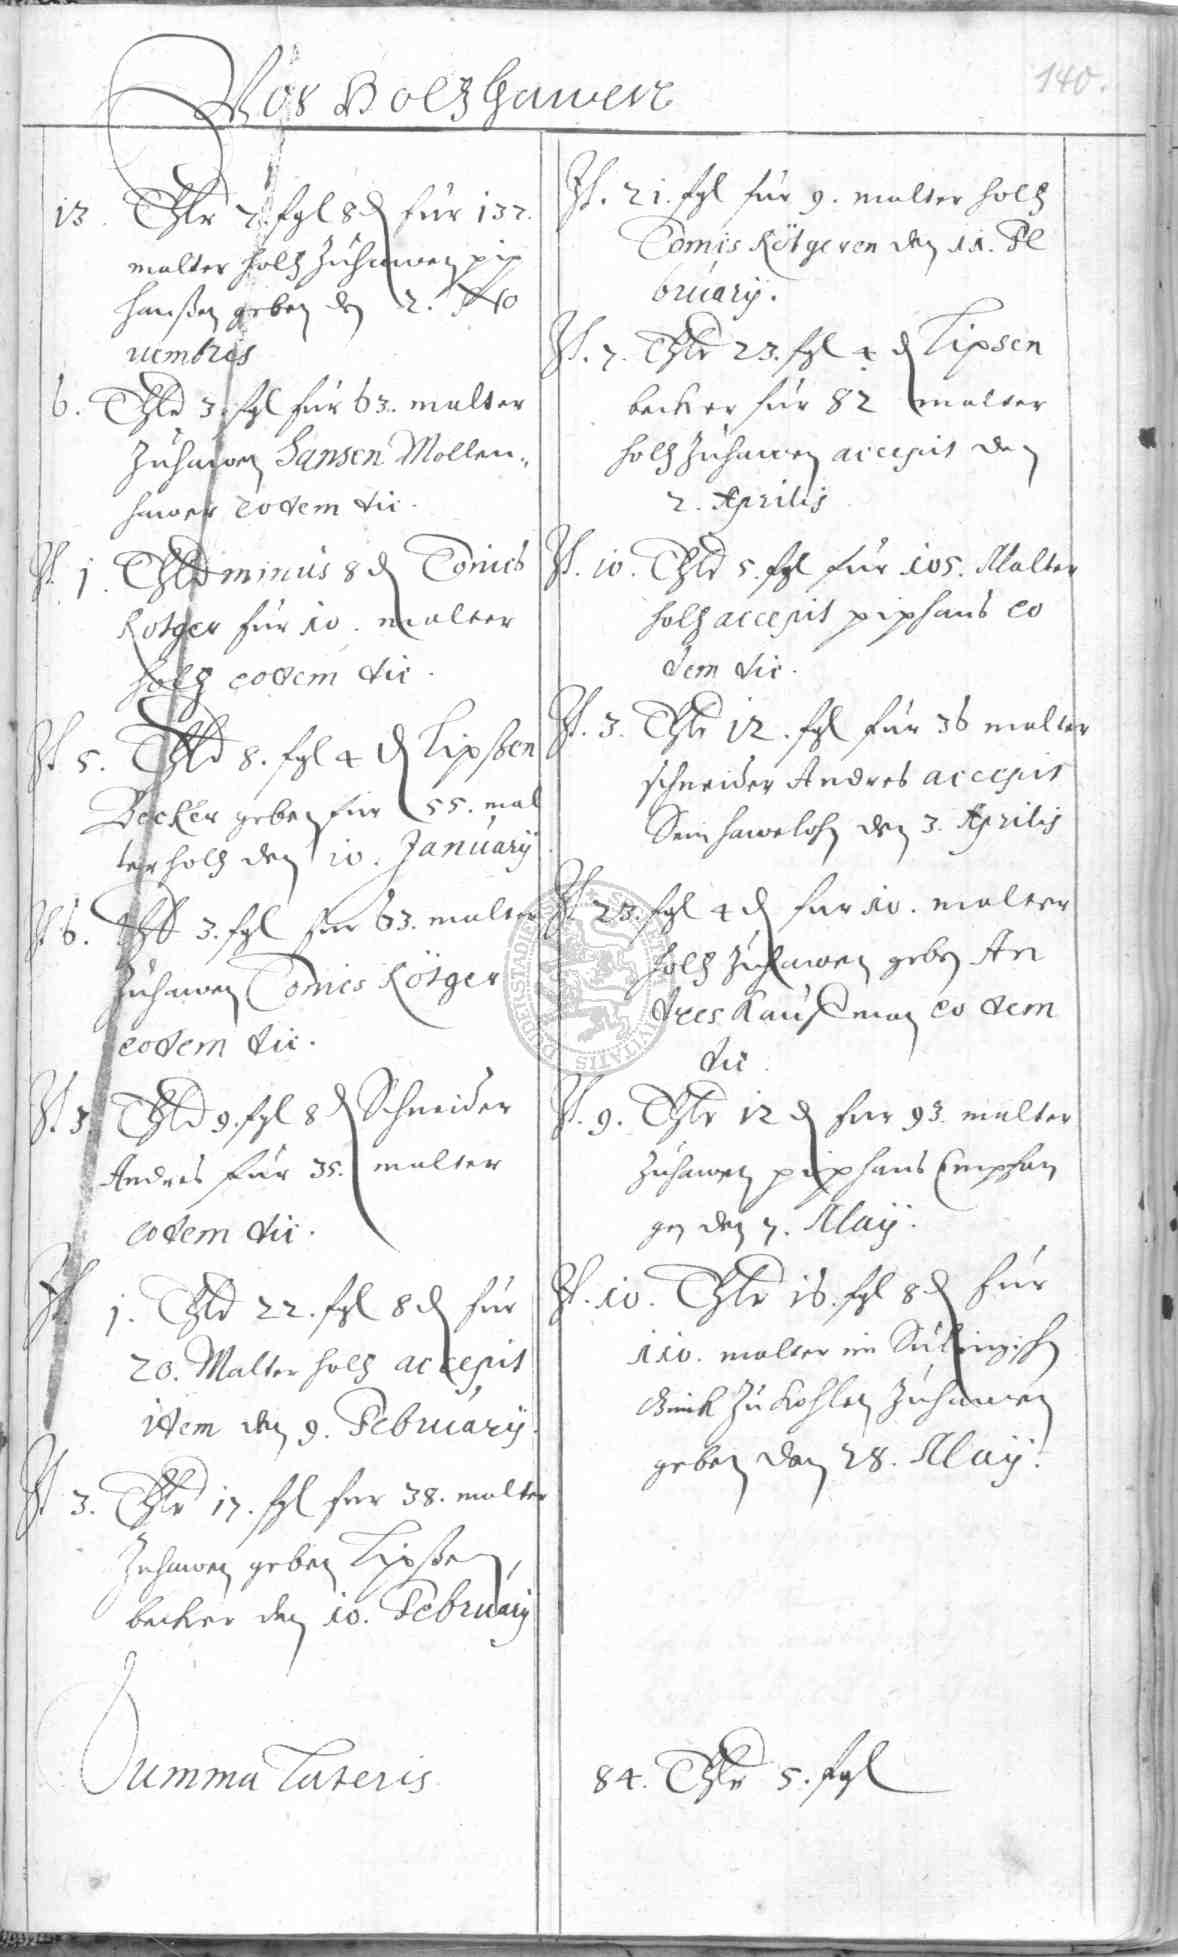 140.
Vor Holtzhawen
13. Thlr 7. sgl 8 d für 137.
malter holtz Zuhawen pip
hansen geben den 2. No
uembris
6. Thlr 3. sgl für 63. malter
Zuhawen Hansen Mollen„
hawer eodem die.
It. 1. Thlr minus 8 d Tonies
Rotger für 10. malter
holtz eodem die.
It. 5. Thlr 8. sgl 4 d Lipßen
Becker geben für 55. mal
ter holtz den 10. January
It. 6. Thlr 3. sgl für 63. malter
Zuhawen Tonies Rötger
eodem die.
It. 3. Thlr 9. sgl 8 d Schneider
Andres für 35. malter
eodem die.
It. 1. Thlr 22. sgl 8 d für
20. Malter holtz accepit
idem den 9. February.
It. 3. Thlr 17. sgl für 38. malter
Zuhawen geben Lipßen
becker den 10. February
Summa Lateris
It. 21. sgl für 9. malter holtz
Tomis Rötgeren den 11. Fe
bruary.
It. 7. Thlr 23. sgl 4 d Lipsen
becker für 82 malter
holtz Zuhawen accepit den
2. Aprilis
It. 10. Thlr 5. sgl für 105. Malter
holtz accepit piphans eo
dem die.
It. 3. Thlr 12. sgl für 36 malter
schneider Andres accepit
Sein hawelohn den 3. Aprilis
It. 23. sgl 4 d für 10. malter
holtz Zuhawen geben An
dres Kauffman eo dem
die.
It. 9. Thlr 12 d für 93. malter
Zuhawen piphans Empfan
gen den 7. Maij.
It. 10. Thlr 16. sgl 8 d für
110. malter im
Zu Kohlen Zuhawen
geben den 28. Maij.
84. Thlr 5. sgl
DUDERSTADIE CIVITATIS